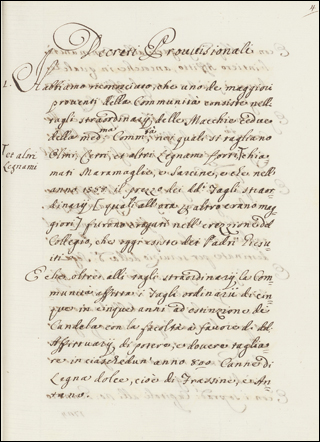 4
Decreti Provisionale
1. Habbiamo riconosciuto, che uno de maggiori
proventi della Communità consiste nelli
tagli straordinarij delle Macchie Cedue
della med:ma Comm:tà, ne quali si tagliano
Olmi, Cerri, et altri Legnami forti chia=
et altri
Legnami
mati Maramaglio, e Sarcine, e che nell'
anno il prezzo de dd. Tagli straor=
dinarij [quali all'ora
giori] furono erogati nell'erezzione del
Collegio, che oggi resta de Padri Giesu=
iti
E che oltre alli tagli straordinarij la Com=
munità affitta i Tagli ordinarii di cin=
que in cinque anni ad estinzione di
Candela con la facoltà à favore di dd.
Affittuarij di potere, e dovere taglia=
re in ciaschedun' anno Canne di
Legna dolce, cioè di Frassine, e An=
tano.